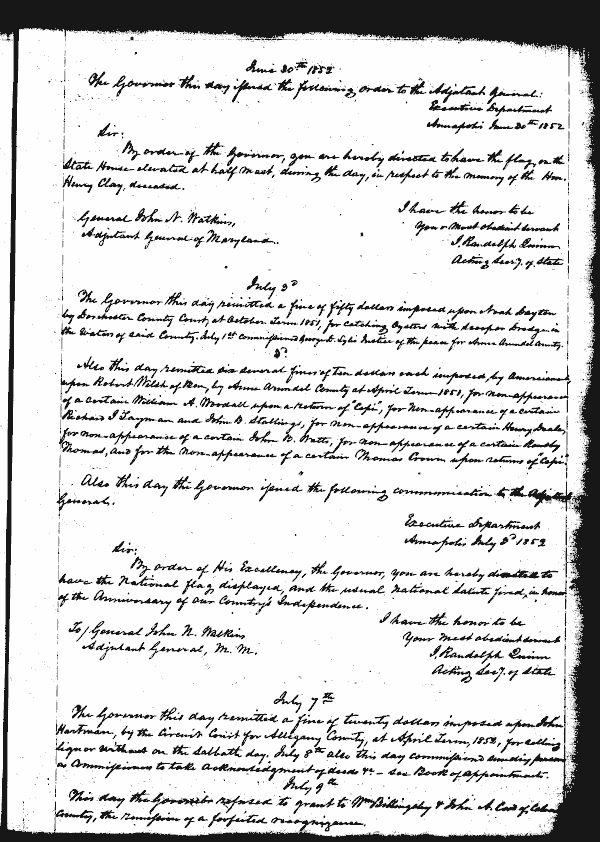 June 30th 1852
The Governor this day issued the following order to the Adjutant General:
Executive Department
Annapolis June 30th 1852
Sir:
By order of the Governor, you are hereby directed to have the flag, on the
State House elevated at half mast, during the day, in respect to the memory of the Hon.
Henry Clay, deceased.
I have the honor to be
General John N. Watkins,
Your Most obedient servant
Adjutant General of Maryland.
J. Randolph Quinn
Acting Secy. of State
July 3d
The Governor this day remitted a fine of fifty dollars imposed upon Noah Dayton
by Dorchester County Court, at October Term 1851, for catching Oysters with scoop or Dredge in
the Waters of said County. July 1st commissioned George justice of the peace for Anne Arundel County.
3d
Also this day remitted six several fines of ten dollars each imposed by
upon Robert Welsh of Ben, by Anne Arundel County at April Term 1851, for non-appearance
of a certain William A. Woodall upon a return of "Cepi", for Non-appearance of a certain
Richard I Layman and John B. Stallings, for non-appearance of a certain Henry Deale,
for non-appearance of a certain John N. Watts, for non-appearance of a certain
Thomas, and for the non-appearance of a certain Thomas Crown upon returns of "Cepi".
Also this day the Governor issued the following communication to the Adjutant
General.
Executive Department
Annapolis July 3d 1852
Sir:
By order of His Excellency, the Governor, you are hereby directed to
have the National flag displayed, and the usual National Salute fired, in honor
of the Anniversary of our Country's Independence.
I have the honor to be
To/ General John N. Watkins
Your most obedient servant
Adjutant General, M. M.
J. Randolph Quinn
Acting Secy. of State
July 7th
The Governor this day remitted a fine of twenty dollars imposed upon John
Hartman, by the Circuit Court for Allegany County, at April Term, 1852, for selling
liquor without on the Sabbath day. July 8th also this day commissioned sundry persons
as Commissioners to take Acknowledgment of deeds &c - see Book of appointments.
July 9th
This day the Governor refused to grant to Wm Billingsley & John A. of
County, the remission of a forfeited recognizance.